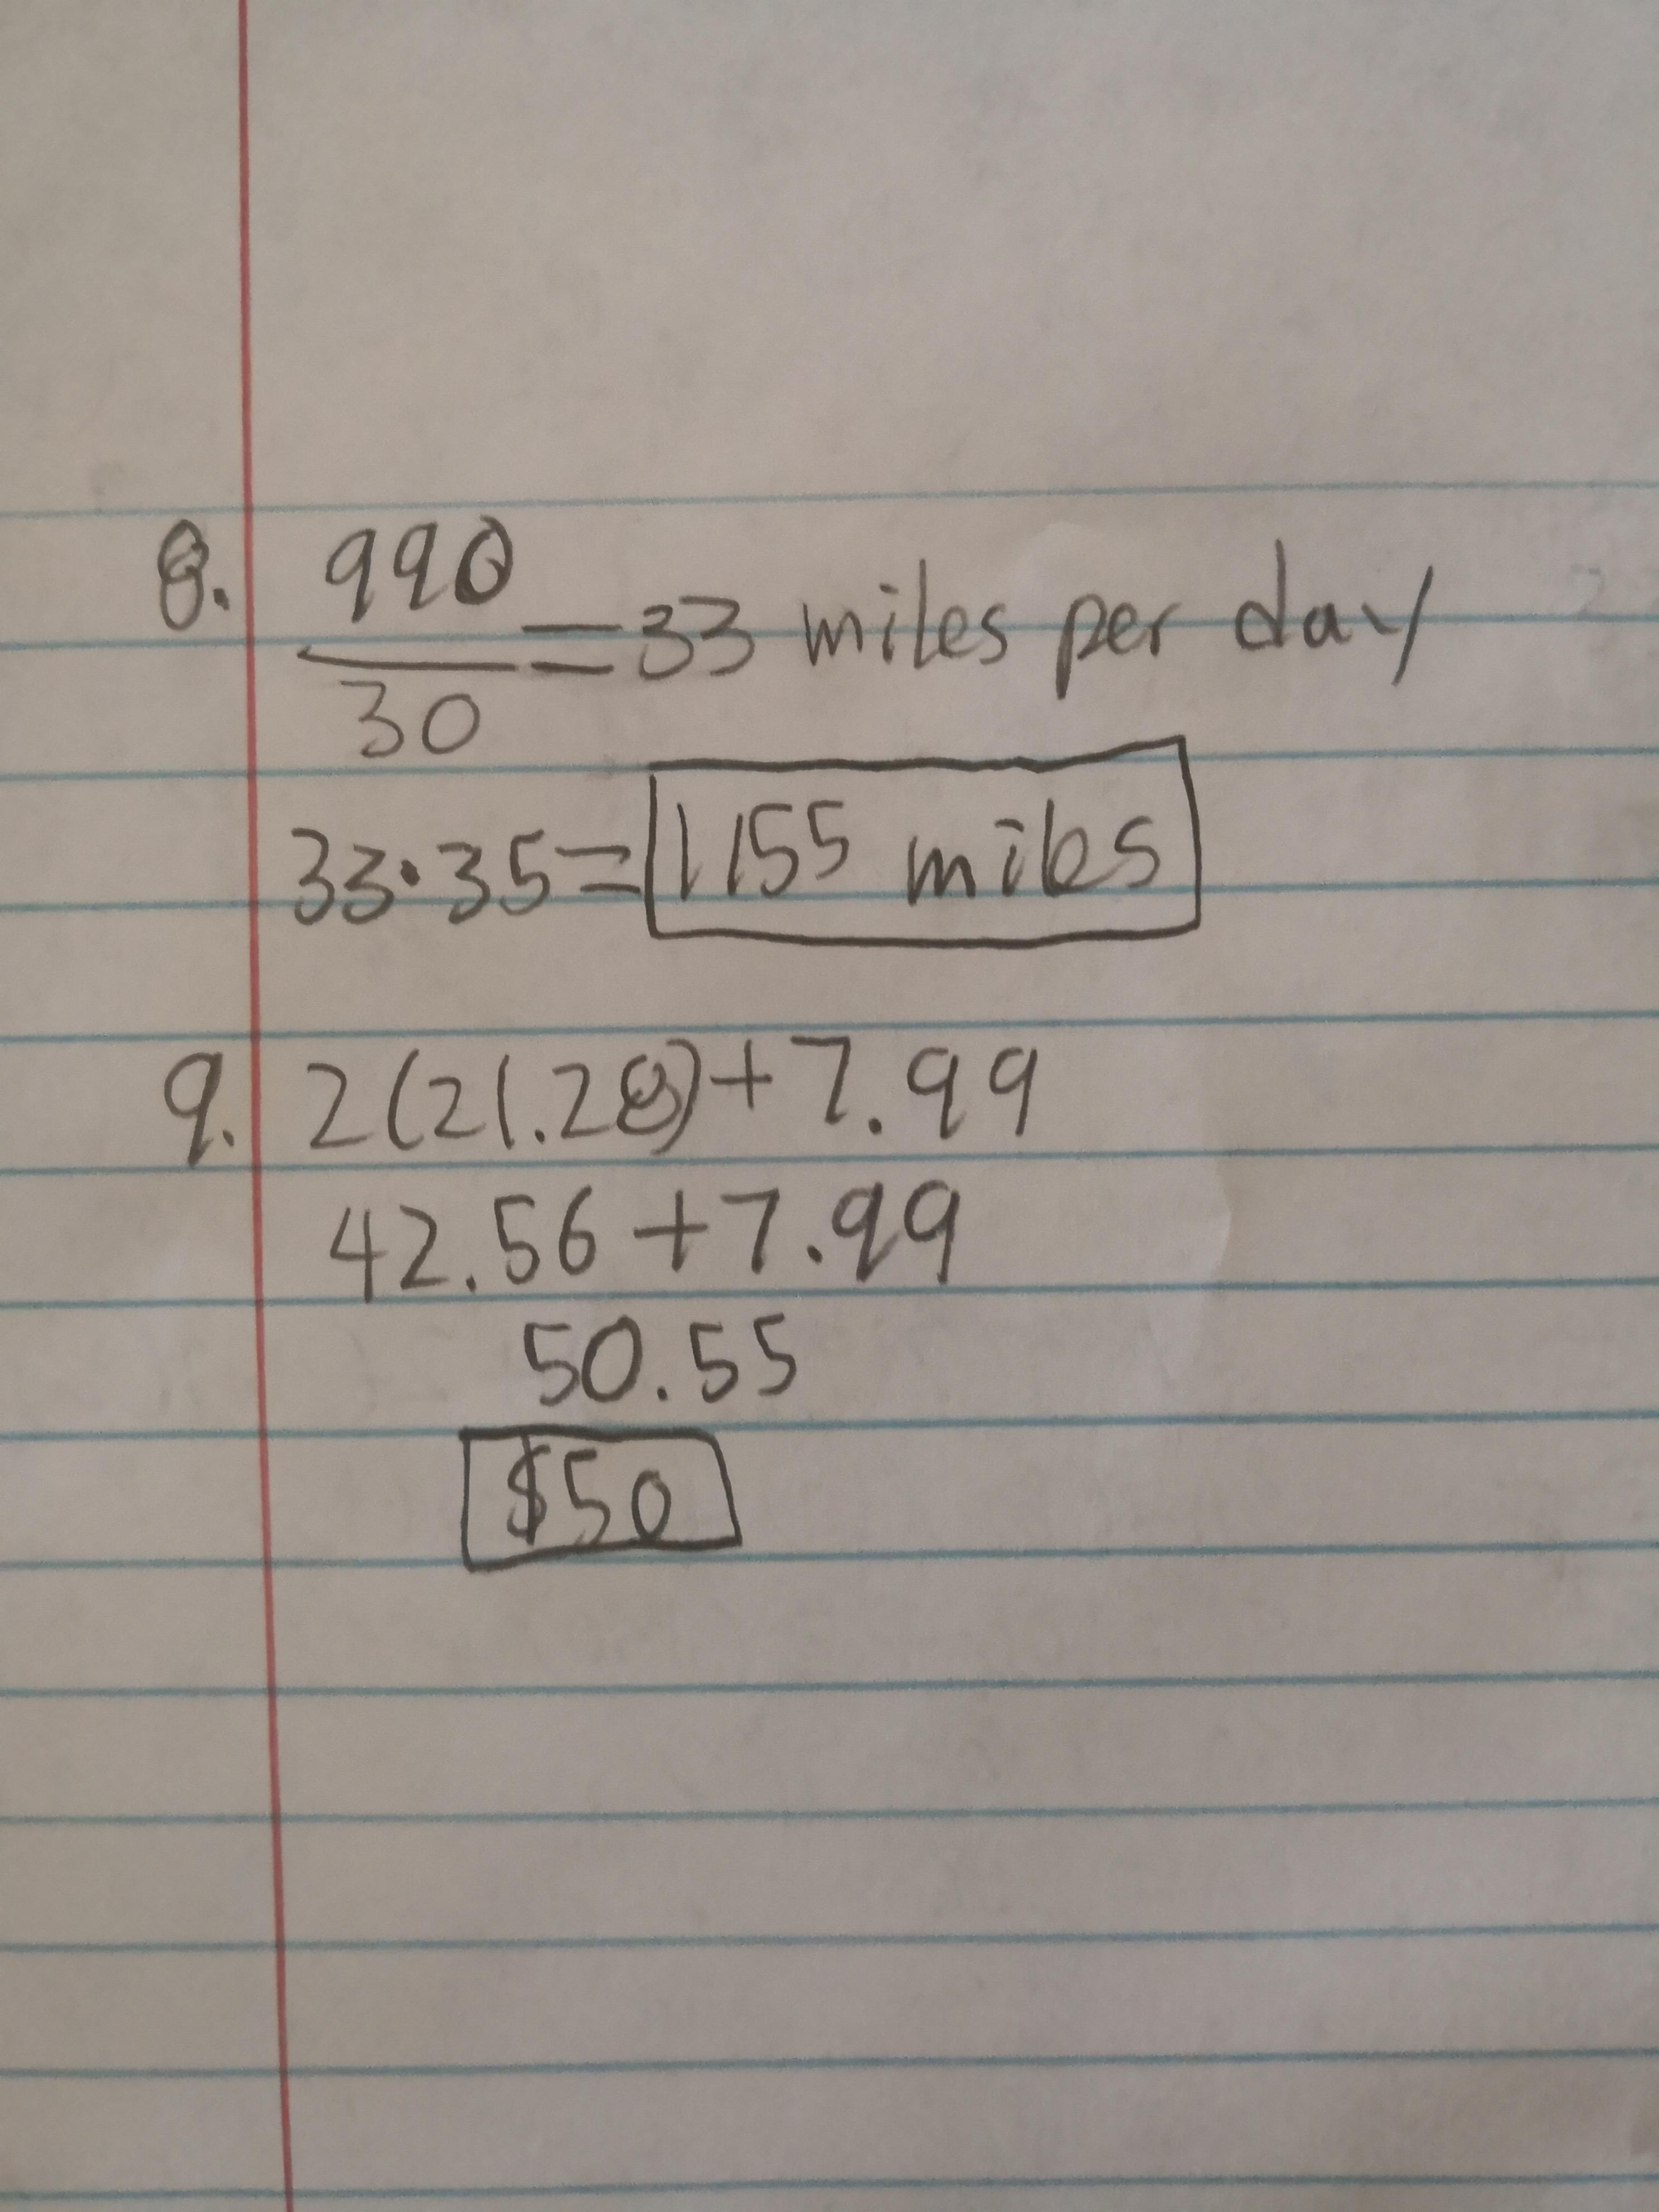 8. 990/30 = 33 miles per day
33·35= 1155 miles
9. 2(21.28)+7.99
42.56+7.99
50.55
$50